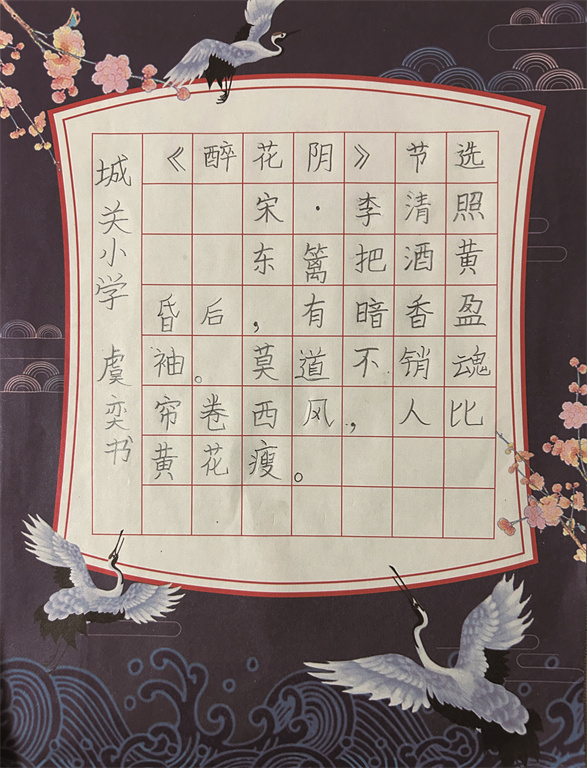 《醉花阴》节选
宋·李清照
东篱把酒黄
昏后,有暗香盈
袖。莫道不销魂
帘卷西风,人比
黄花瘦。
城关小学 虞奕书